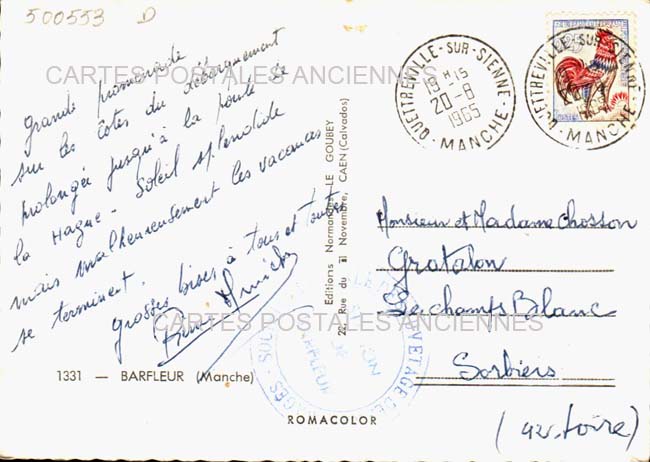 500553 D
Grande promenade
sur les côtes du débarquement
prolongée jusqu'à la pointe de
la Hague - Soleil splendide
mais malheureusement les vacances
se terminent.
Grosses bises à tous et toutes
CARTES POSTALES ANCIENNES
CARTES POSTALES ANCIENNES
1331 — BARFLEUR (Manche)
Editions Normandes LE GOUBEY
22, Rue du 11 Novembre, CAEN (Calvados)
ROMACOLOR
QUETTREVILLE-SUR-SIENNE
18 H 15
20-8
1965
MANCHE
QUETTREVILLE-SUR-SIENNE
1965
MANCHE
Monsieur et Madame Chosson
Gratalon
Le champs Blanc
Sorbiers
(42. Loire)